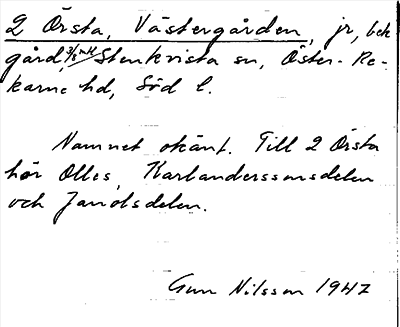 2 Örsta, Västergården, jr, bek
gård, 3/8 mtl Stenkvista sn, Öster-Re-
karne hd, Söd l.
Namnet okänt. Till 2 Örsta
hör Olles, Karlanderssonsdelen
och Janolsdelen.
Gun Nilsson 1947